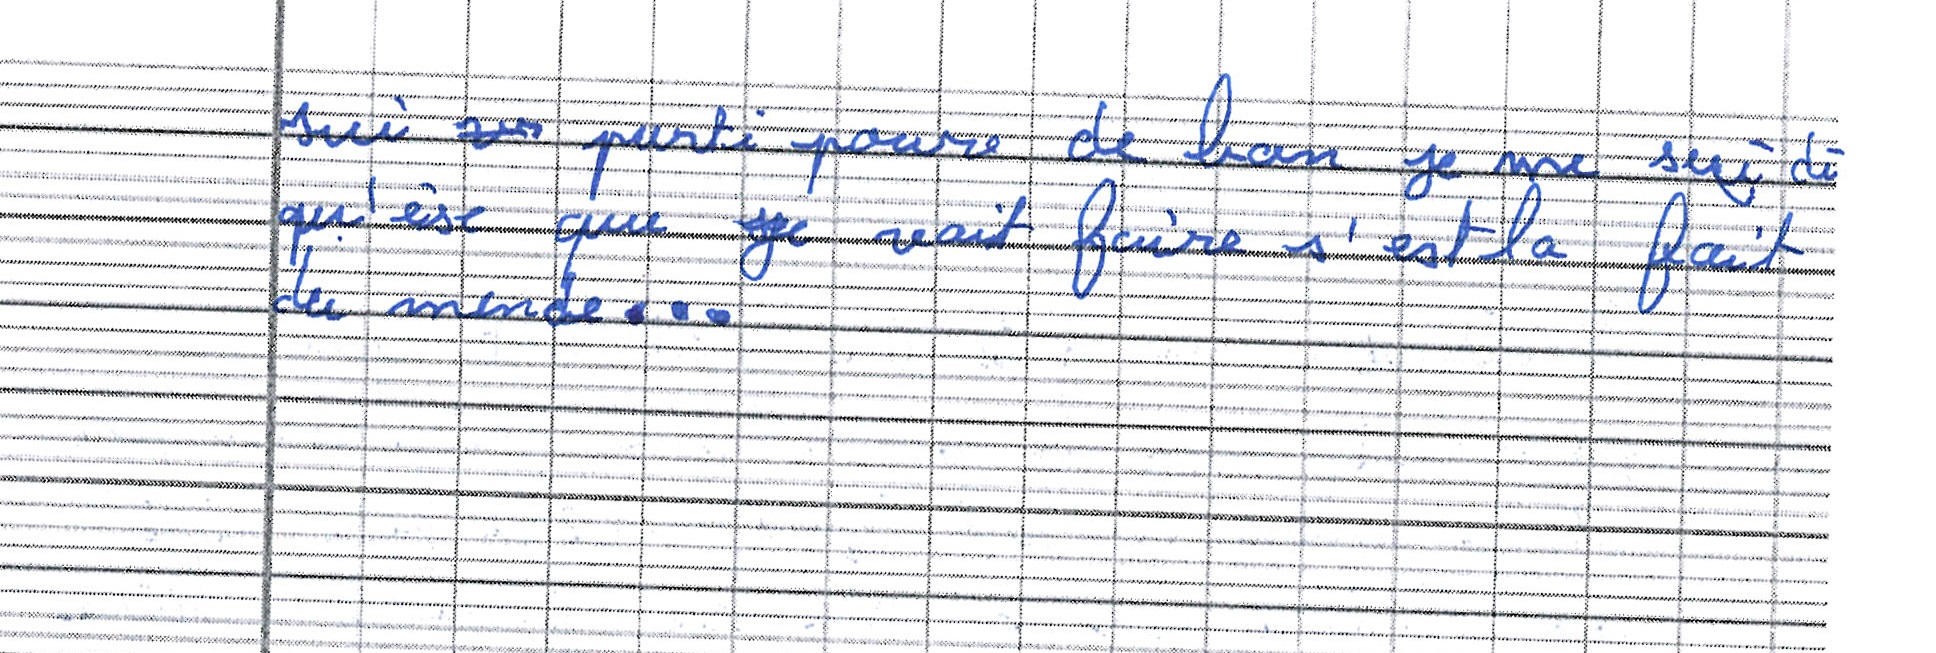 sui parti poure de bon je me sui di
qu'ése que je vait faire s'est la fait
du monde...